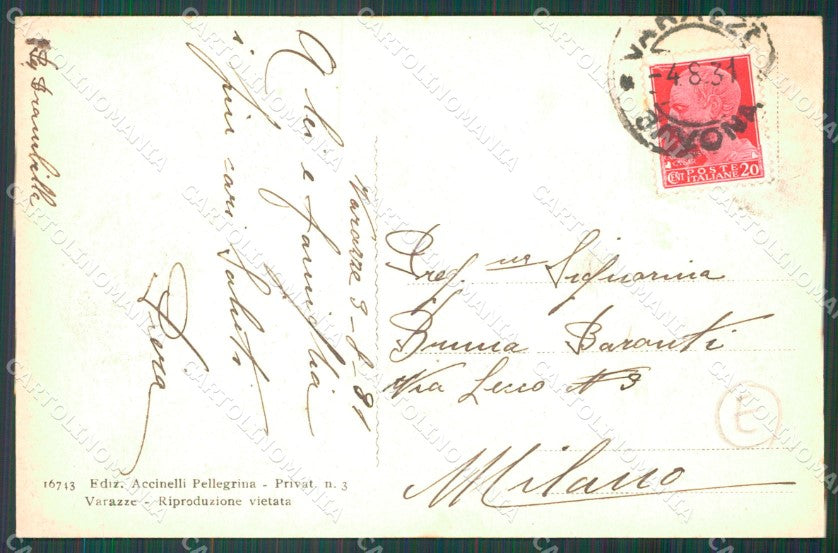 Varazze 3-8-31
A lei e famiglia
i più cari saluti
Piera
VARAZZE
-4.8.31
CENT POSTE 20
ITALIANE
Preg. ma Signorina
Bruna Baronti
Via Lecco N 3
Milano
E
16743 Ediz. Accinelli Pellegrina - Privat. n. 3
Varazze - Riproduzione vietata
CARTOLINOMANIA